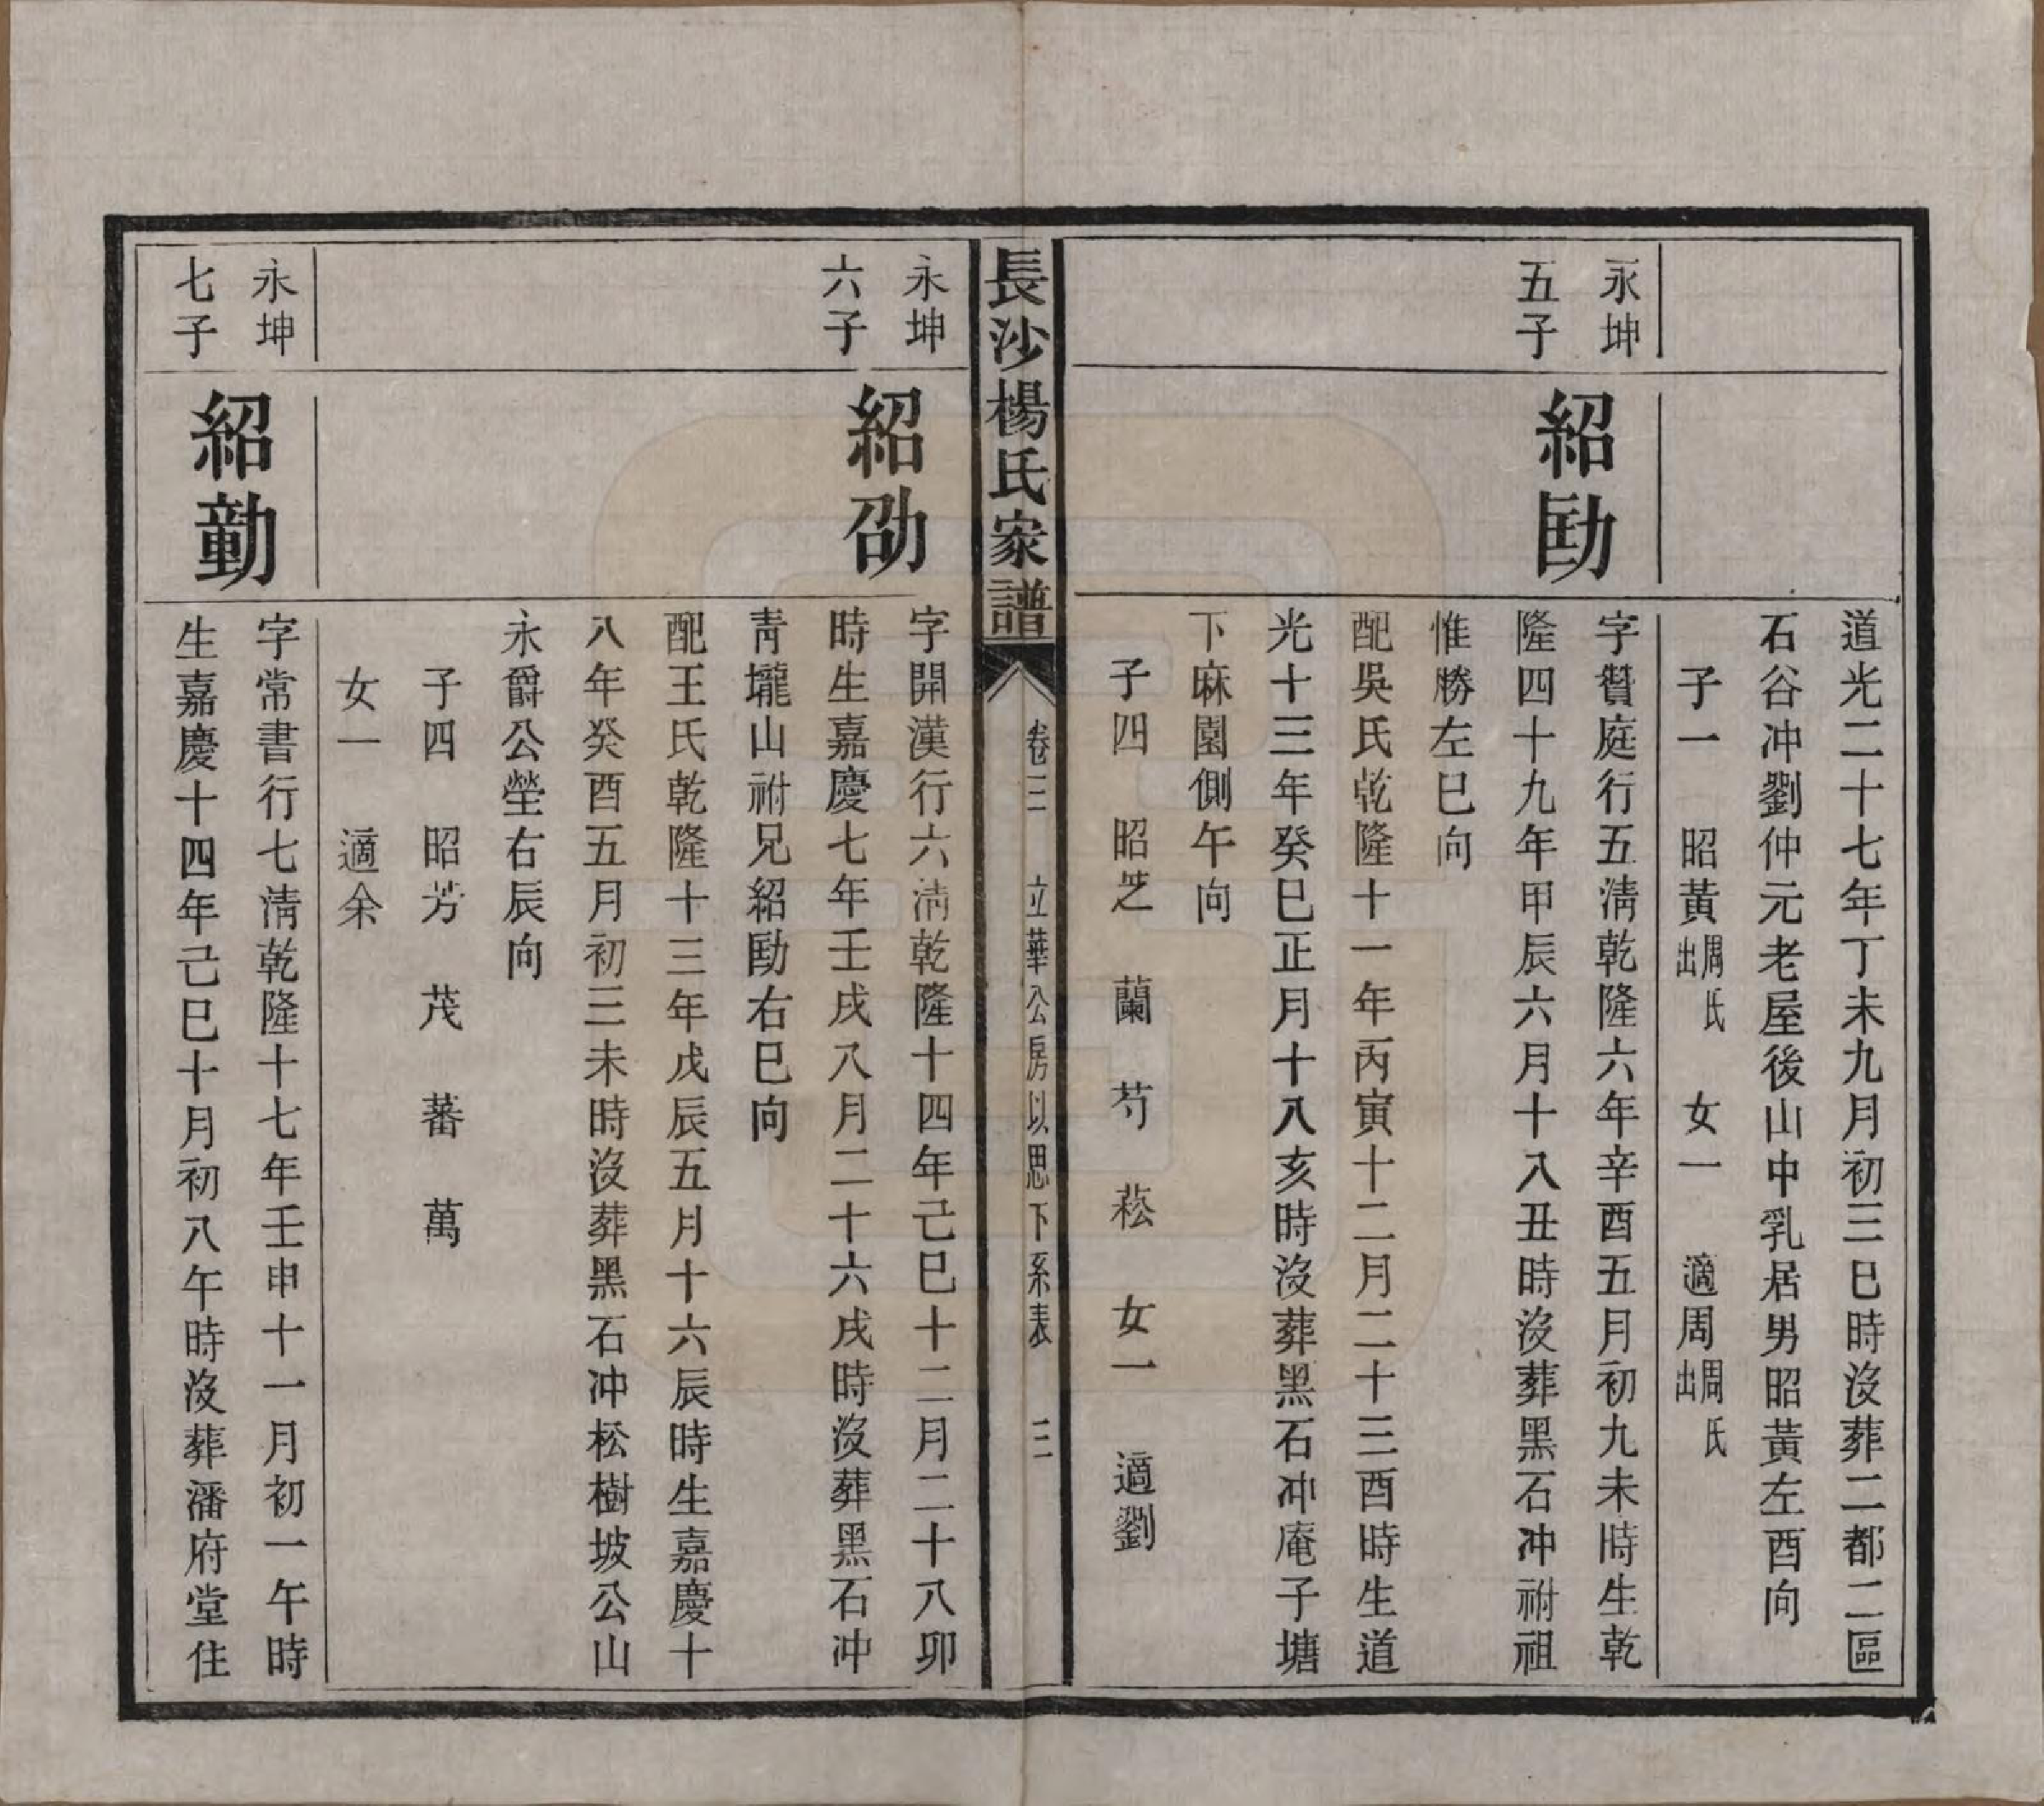 道光二十七年丁未九月初三巳時沒葬二都二區
石谷冲劉仲元老屋後山中乳居男昭黃左酉向
子一　昭黃周氏出　女一　適周周氏出
永坤
五子
紹勖
字贊庭行五淸乾隆六年辛酉五月初九未時生乾
隆四十九年甲辰六月十八丑時沒葬黑石冲祔祖
惟勝左巳向
配吳氏乾隆十一年丙寅十二月二十三酉時生道
光十三年癸巳正月十八亥時沒葬黑石冲庵子塘
下麻園側午向
子四　昭芝　蘭　芍　菘　女一　適劉
長沙楊氏家譜
卷三　立華公房以思下系表　三
永坤
六子
紹劭
字開漢行六淸乾隆十四年己巳十二月二十八卯
時生嘉慶七年壬戌八月二十六戌時沒葬黑石冲
靑壠山祔兄紹勖右巳向
配王氏乾隆十三年戊辰五月十六辰時生嘉慶十
八年癸酉五月初三未時沒葬黑石冲松樹坡公山
永爵公塋右辰向
子四　昭芳　茂　蕃　萬
女一　適余
永坤
七子
紹勭
字常書行七淸乾隆十七年壬申十一月初一午時
生嘉慶十四年己巳十月初八午時沒葬潘府堂住